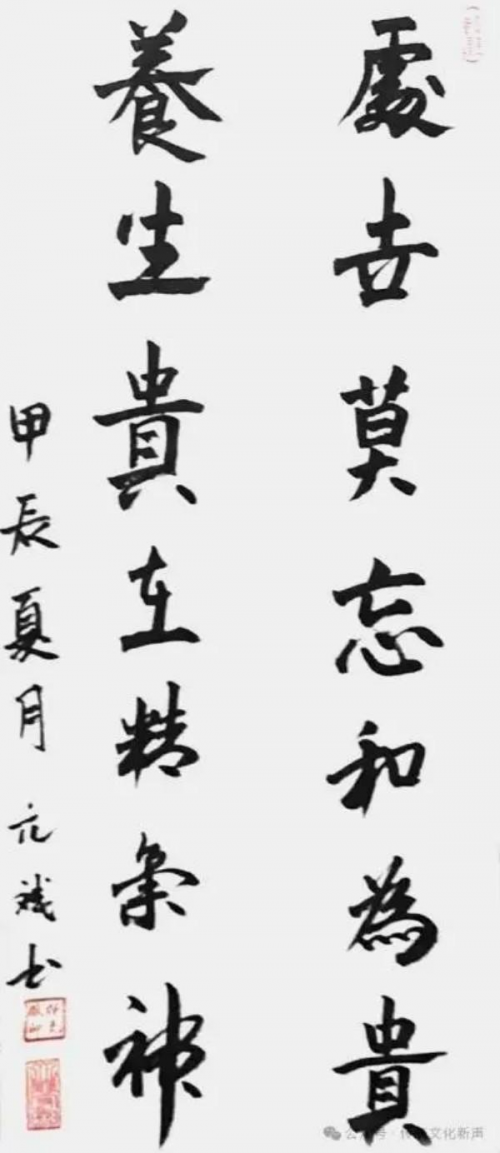 處世莫忘和為貴
養生貴在精氣神
甲辰夏月 元斌书
公众号·传统文化新声